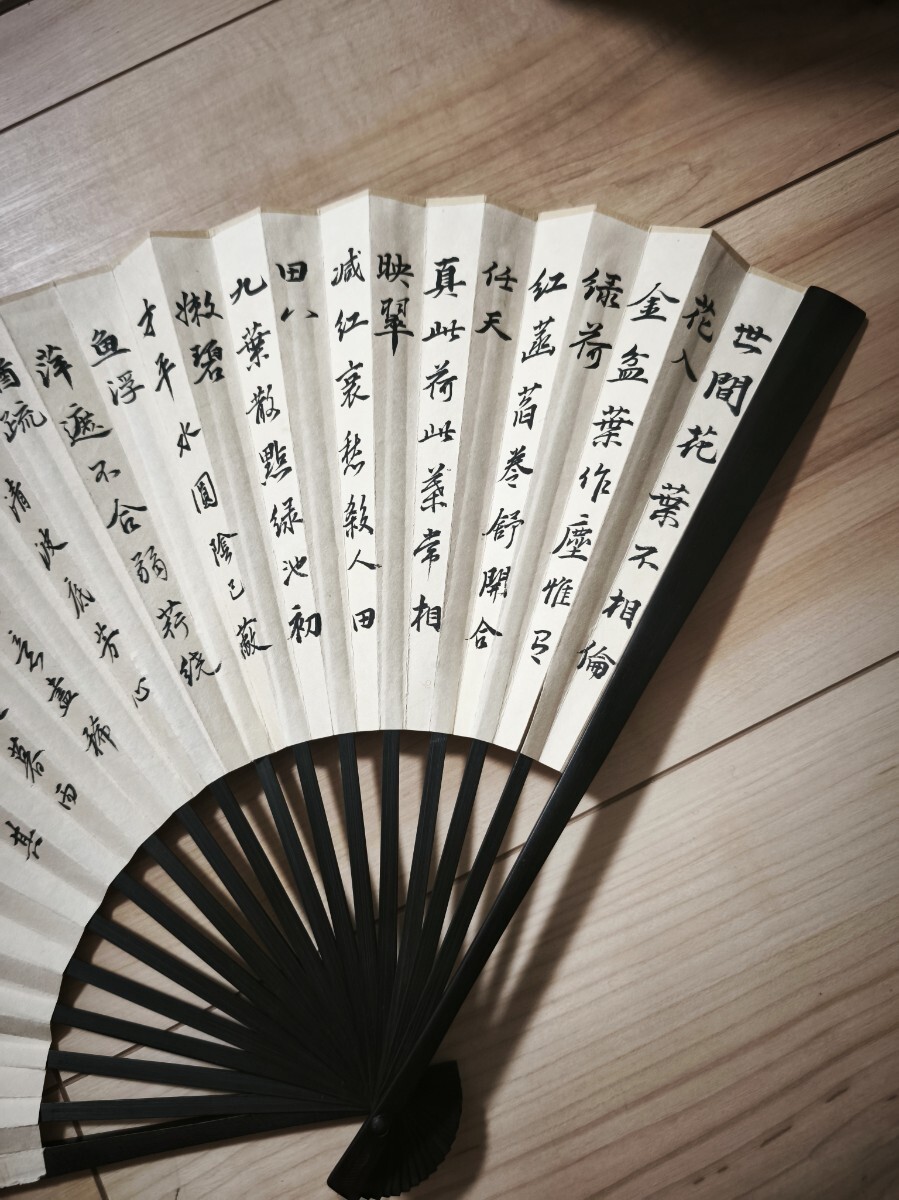 世間花葉不相倫
花入
金盆葉作塵惟有
绿荷
红菡萏卷舒開合
任天
真此荷此葉常相
映翠
減红衰愁殺人田
田八
九葉散點绿池初
嫩碧
才平水圓陰已蔽
魚浮
萍遮不合弱荇绕
疏
清波底芳心
盡稀
暮雨
其